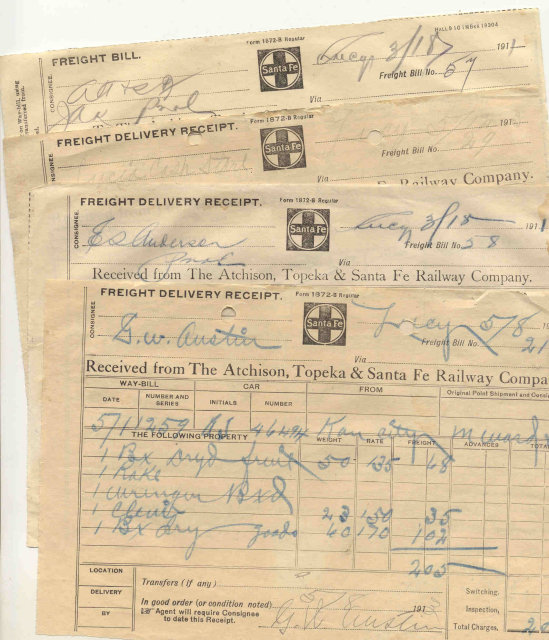 HALL 9 10 INK 19304
FREIGHT BILL.
Form 1872-B Regular
Santa Fe
Lucy 3/18 1911
CONSIGNEE
Freight Bill No. 57
Via
FREIGHT DELIVERY RECEIPT.
Form 1872-B Regular
Santa Fe
191
CONSIGNEE
Freight Bill No.
Via
Fe Railway Company.
FREIGHT DELIVERY RECEIPT.
Form 1872-B Regular
Santa Fe
Lucy 3/18 191
CONSIGNEE
E S Anderson
Freight Bill No. 58
Via
Received from The Atchison, Topeka & Santa Fe Railway Company.
FREIGHT DELIVERY RECEIPT.
Form 1872-B Regular
Santa Fe
Lucy 5/8
CONSIGNEE
G. W. Austin
Freight Bill No. 21
Via
Received from The Atchison, Topeka & Santa Fe Railway Compa
WAY-BILL CAR FROM Original Point Shipment and Consi
DATE NUMBER AND SERIES INITIALS NUMBER
5/1 1259 46494 Kan city m ward
THE FOLLOWING PROPERTY WEIGHT RATE FREIGHT ADVANCES TOTA
1 Box Dryd fruit 50 135 68
1 Rake
1 wringer Bxd
1 23 150 35
1 Bx dry goods 60 170 102
205
LOCATION
DELIVERY
BY
Transfers (if any)
In good order (or condition noted) 5/8 191
Agent will require Consignee
to date this Receipt.
G. W. Austin
Switching,
Inspection,
Total Charges, 20